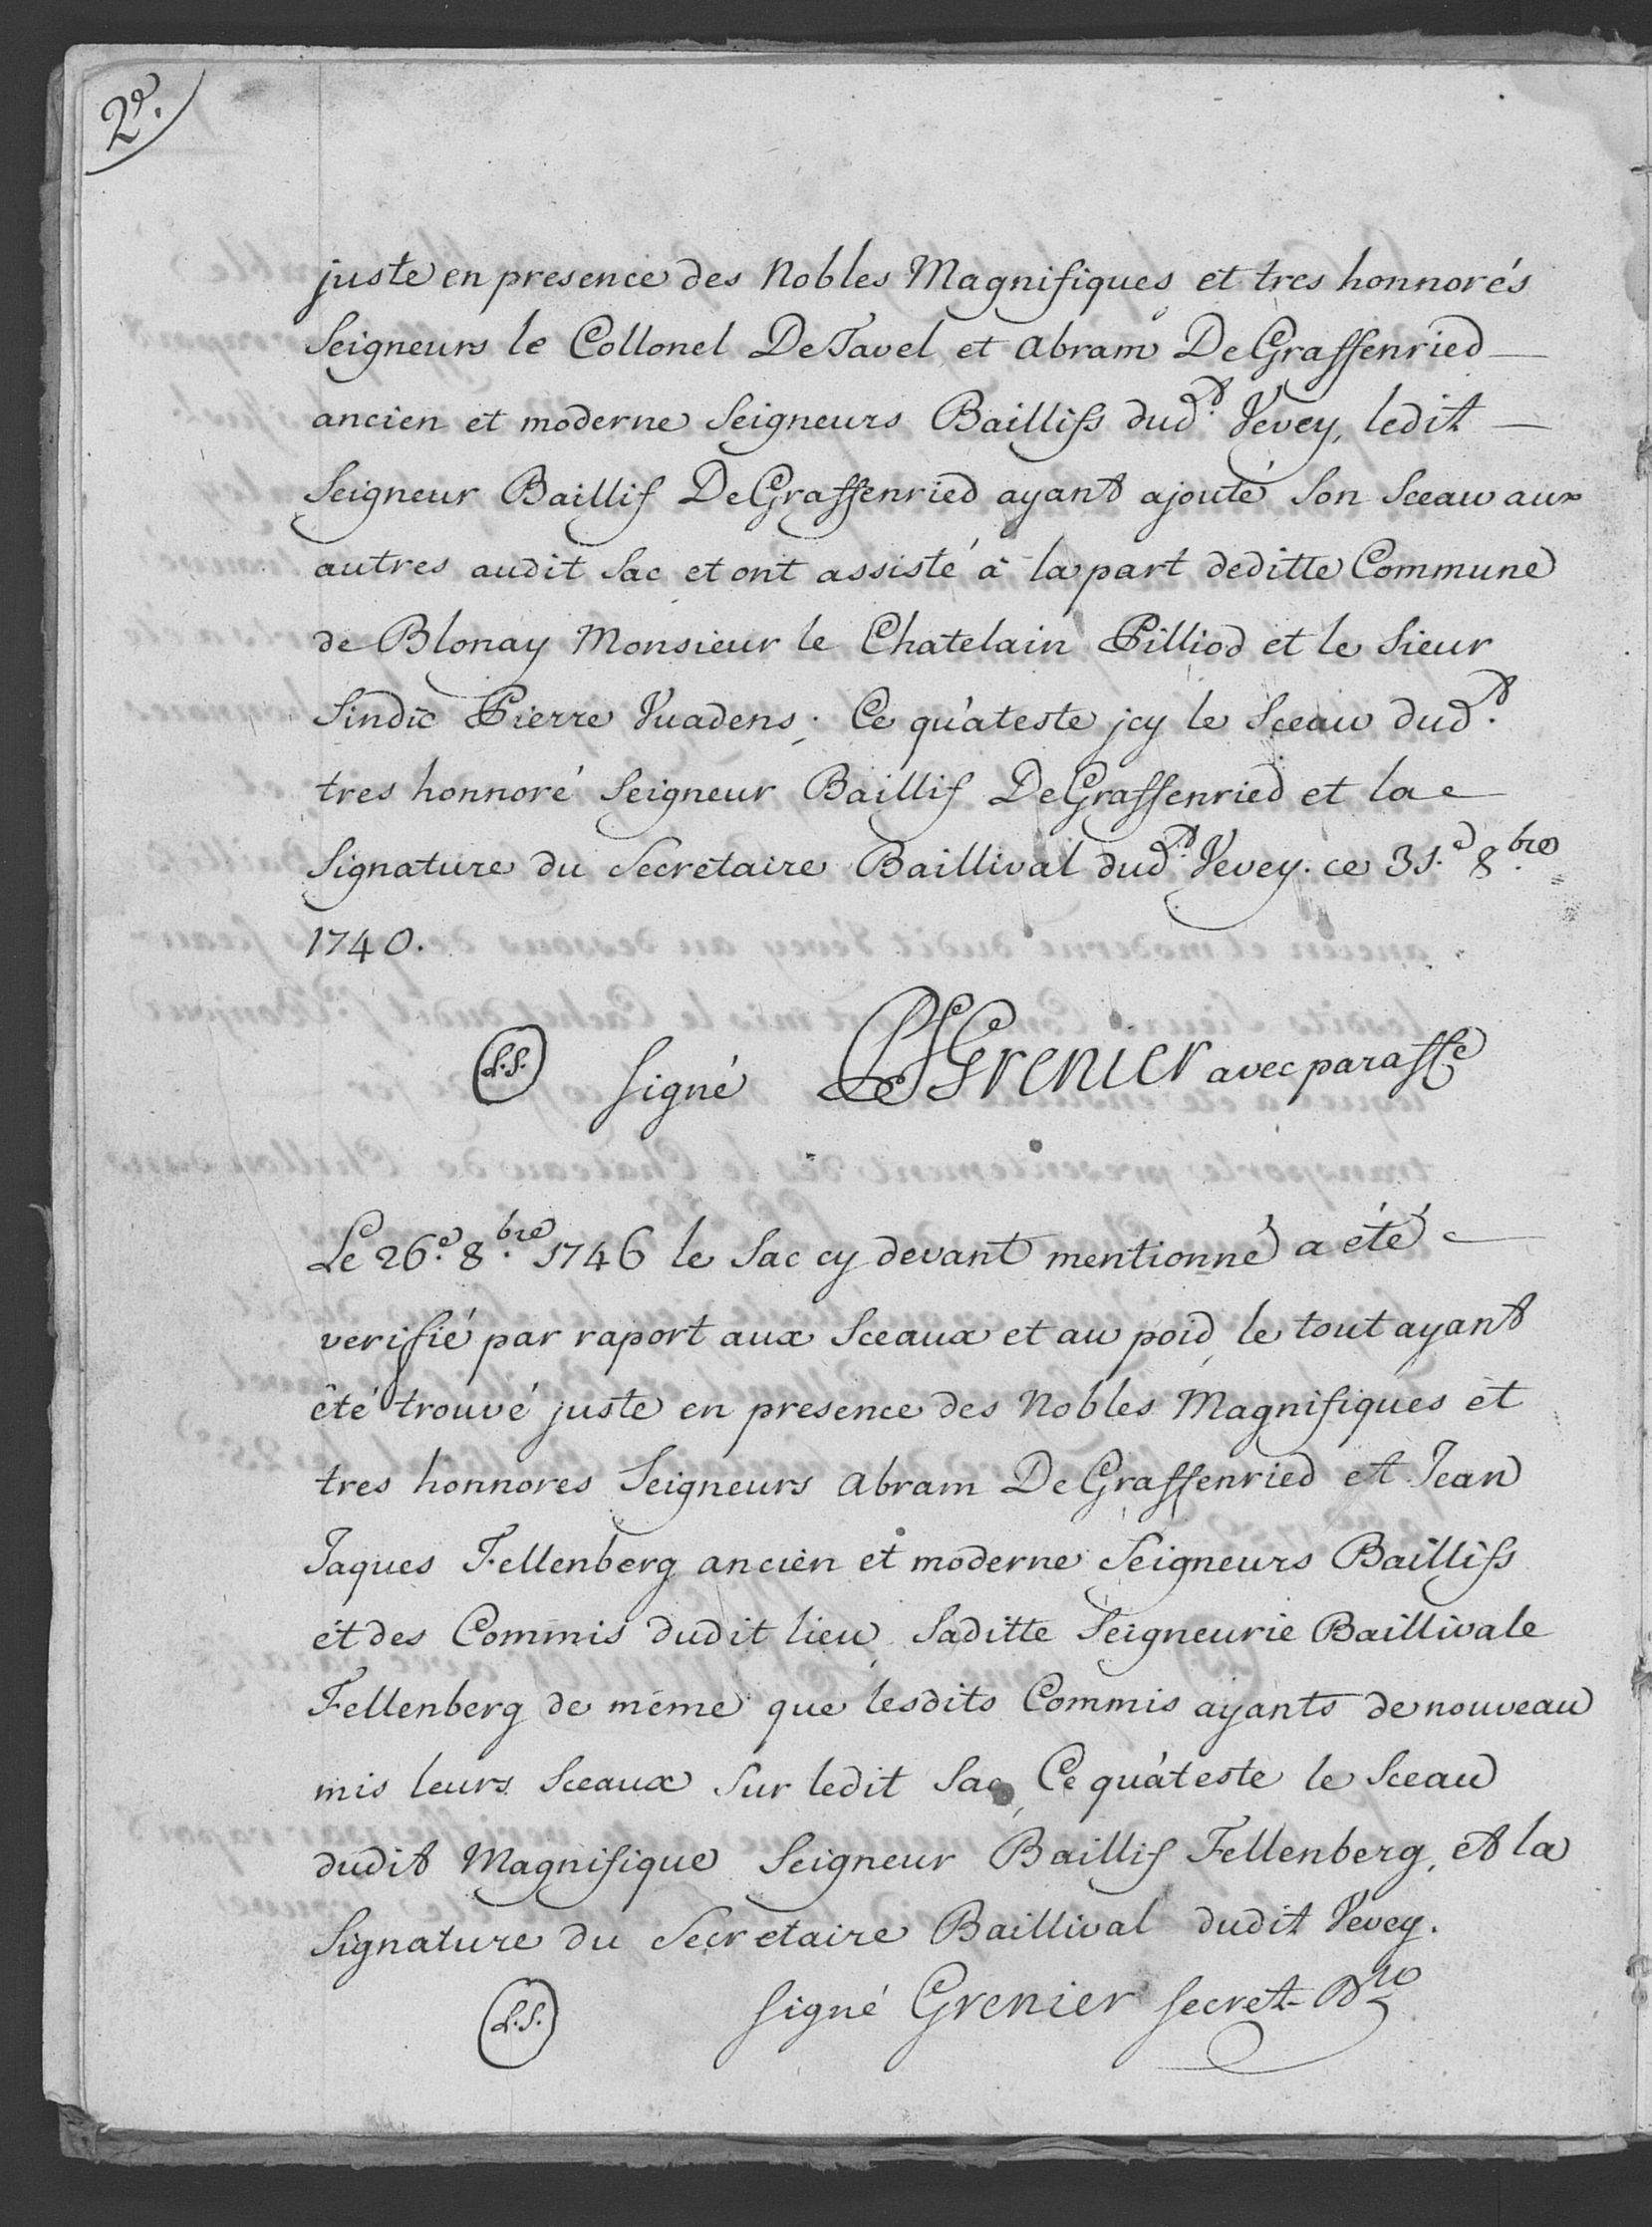 2e.
juste en presence des Nobles Magnifiques et tres honnorés
Seigneurs le Collonel DeTavel et Abram DeGraffenried
ancien et moderne Seigneurs Baillifs dud.t Vevey, ledit
Seigneur Baillif DeGraffenried ayant ajouté Son Sceau aux
autres audit Sac et ont assisté à la part deditte Commune
de Blonay Monsieur le Chatelain Pilliod et le Sieur
Sindic Pierre Vuadens. Ce qu'ateste jcy le Sceau dud.t
tres honnoré Seigneur Baillif DeGraffenried et la
Signature du Secrétaire Baillival dud.t Vevey. ce 31.e 8.bre
1740.
L.S. Signé Grenier avec paraffe
Le 26.e 8.bre 1746 le Sac cy devant mentionné a été
verifié par raport aux Sceaux et au poid, le tout ayant
été trouvé juste en presence des Nobles Magnifiques et
tres honnores Seigneurs Abram DeGraffenried et Jean
Jaques Fellenberg ancien et moderne Seigneurs Baillifs
et des Commis dudit lieu, Saditte Seigneurie Baillivale
Fellenberg de même que lesdits Commis ayants de nouveau
mis leurs Sceaux Sur ledit Sac, Ce qu'ateste le Sceau
dudit Magnifique Seigneur Baillif Fellenberg, et la
Signature du Secretaire Baillival dudit Vevey.
L.S. Signé Grenier Secret.